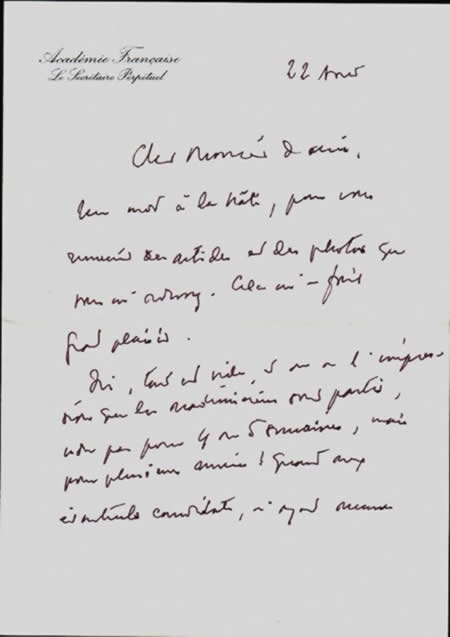 Académie Française
Le Secrétaire Perpétuel
22 Août
Cher Monsieur
Un mot à la hâte, pour vous
remercier des articles et des photos que
vous m'. Cela m'a fait
grand plaisir.
Ici, tout est vide, et on a l'impres-
sion que les sont partis,
non pas pour 4 ou 5 semaines, mais
pour plusieurs années! Quant aux
éventuels candidats, n'ayant aucune